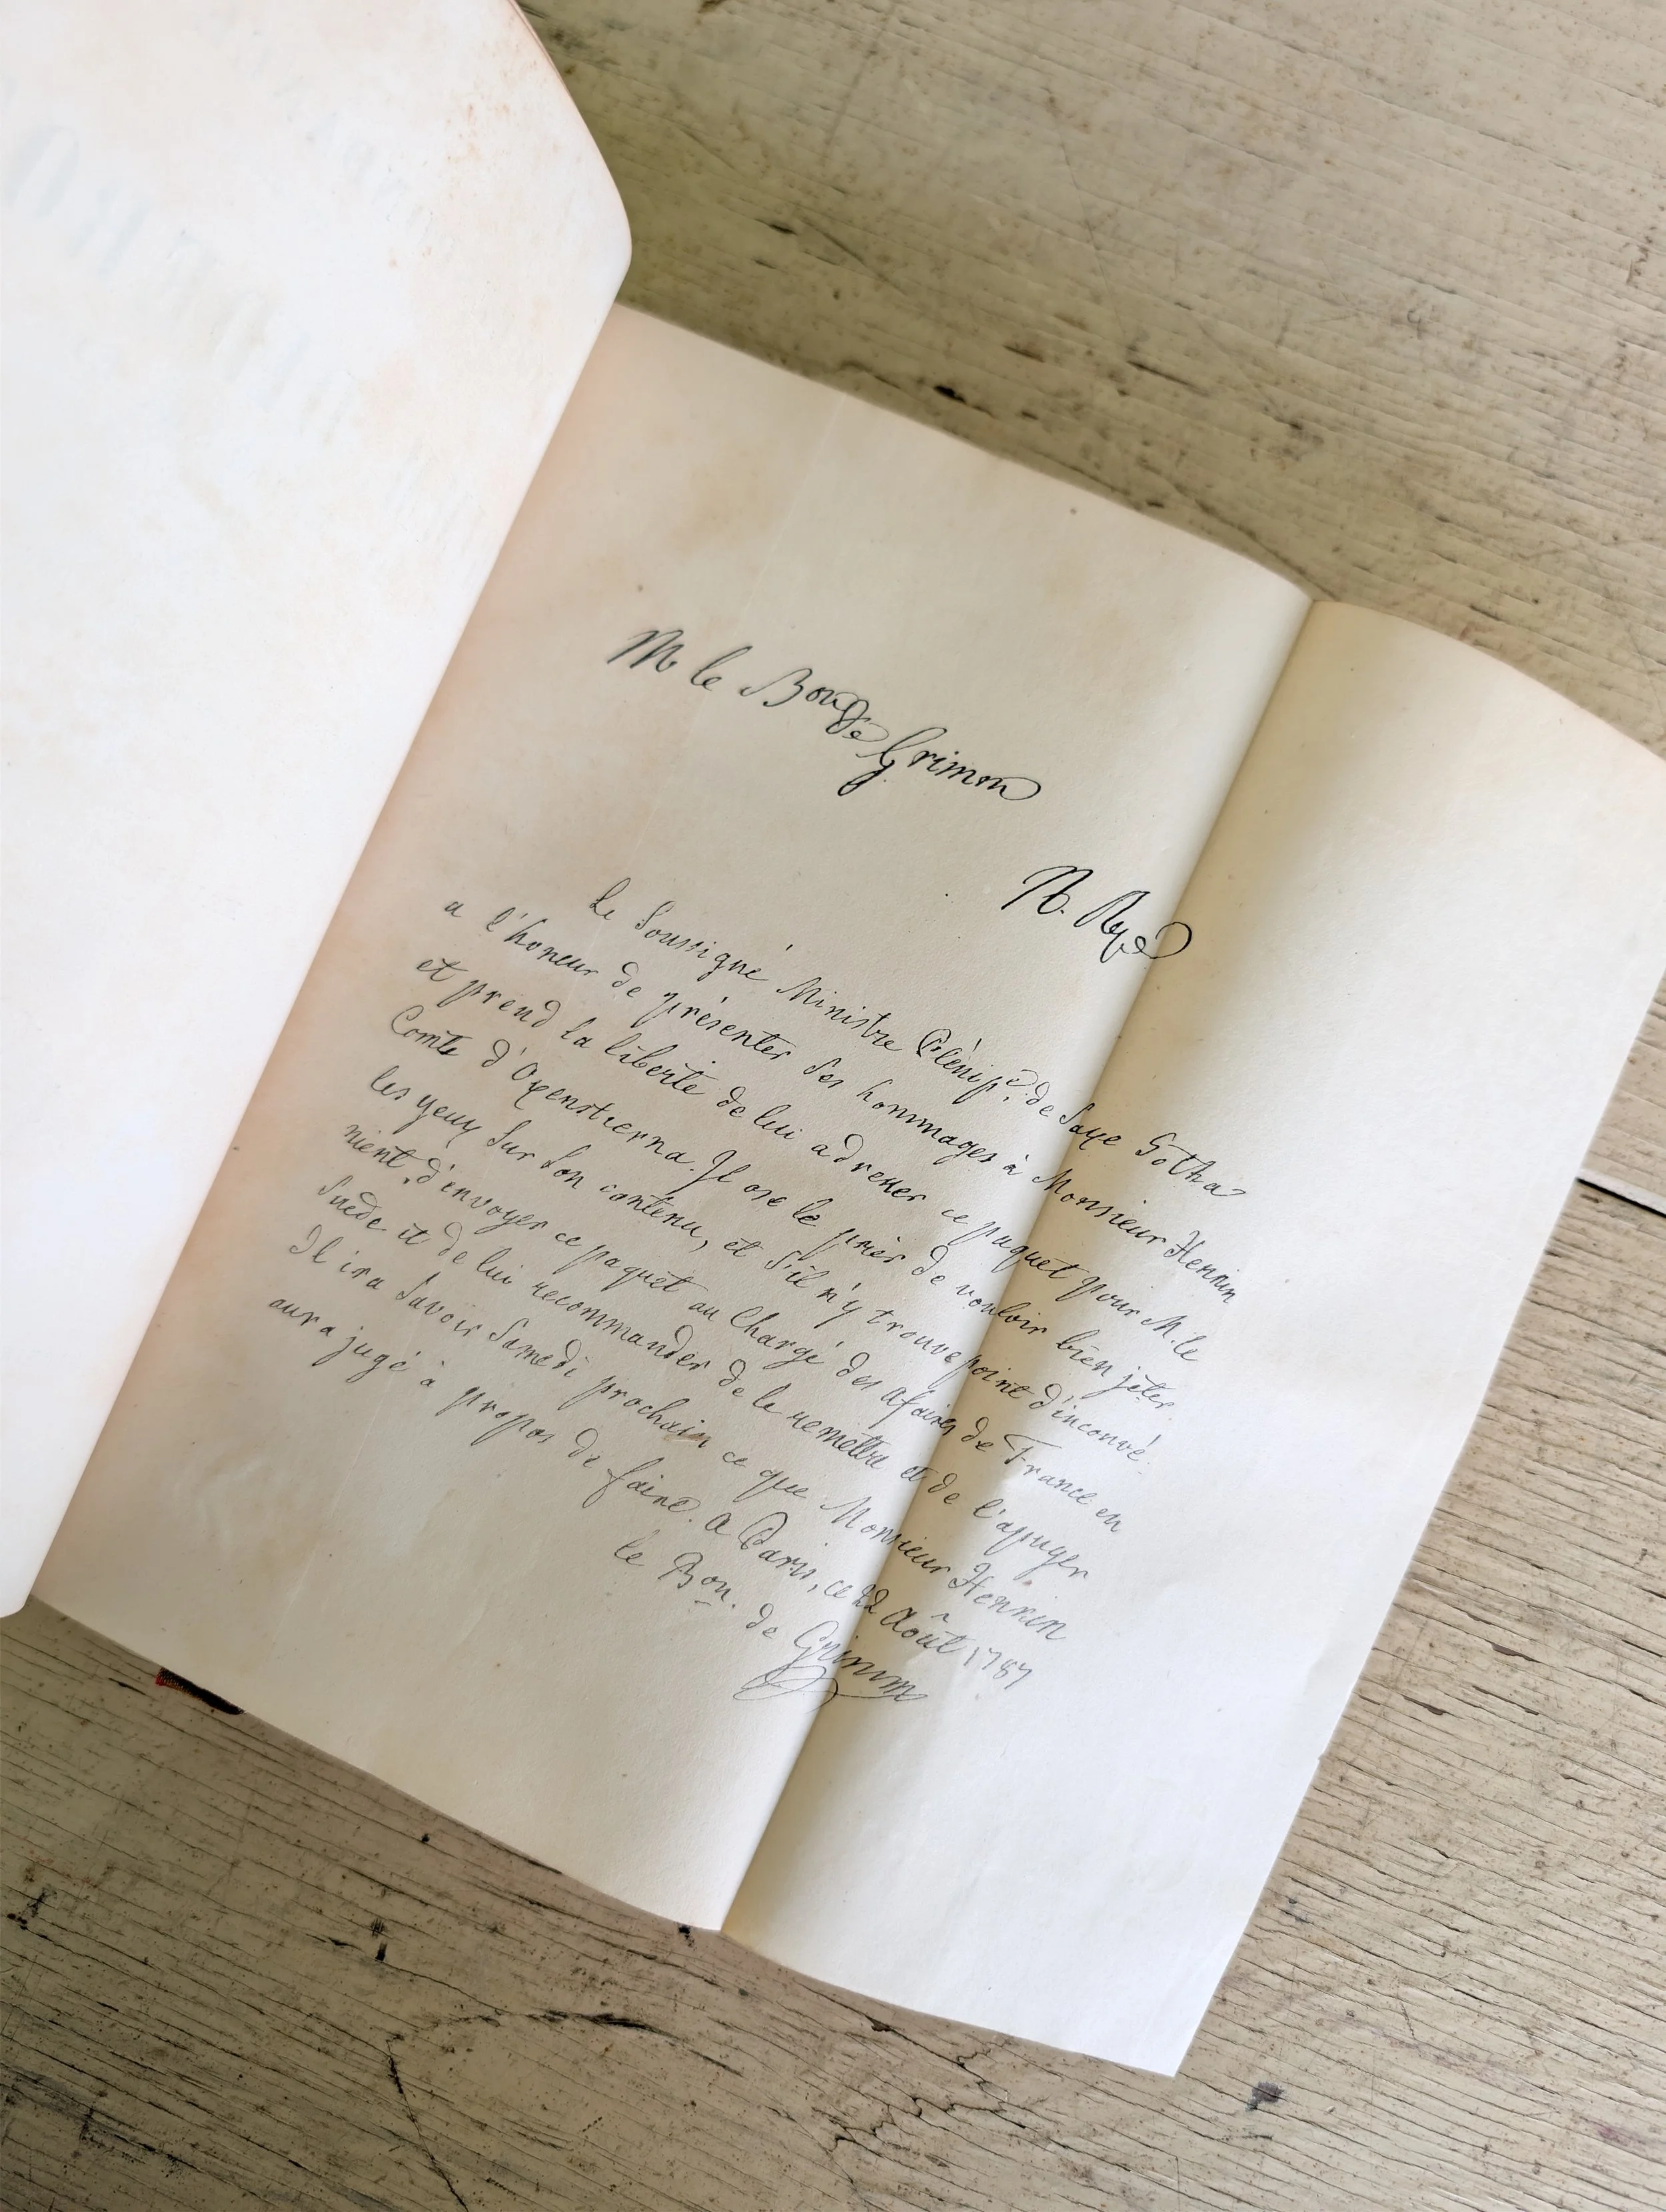 M le Bon de Grimm
Le Soussigné Ministre Plénip.re de Saxe Gotha
a l'honeur de présenter ses hommages à Monsieur Hennin
et prend la liberté de lui adresser ce paquet pour M. le
Comte d'Oxenstierna. Il ose le prier de vouloir bien jeter
les yeux sur son contenu, et s'il n'y trouve point d'inconvé-
nient d'envoyer ce paquet au Chargé des Afaires de France en
Suède et de lui recommander de le remettre et de l'apuyer
Il ira savoir Samedi prochain ce que Monsieur Hennin
aura jugé à propos de faire. A Paris, ce 22 Août 1787
le Bon. de Grimm